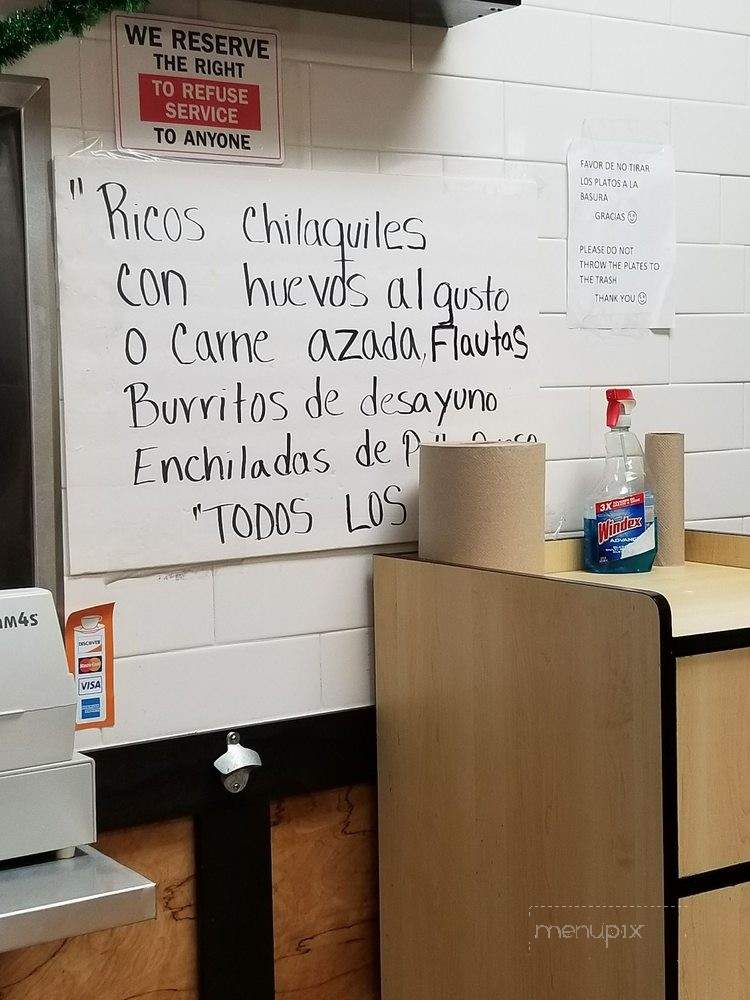 WE RESERVE
THE RIGHT
TO REFUSE
SERVICE
TO ANYONE
"Ricos chilaquiles
con huevos al gusto
o Carne azada, Flautas
Burritos de desayuno
Enchiladas de
"TODOS LOS
FAVOR DE NO TIRAR
LOS PLATOS A LA
BASURA
GRACIAS ☺
PLEASE DO NOT
THROW THE PLATES TO
THE TRASH
THANK YOU ☺
3X
Windex
ADVANC
M4S
DISCOVER
MasterCard
VISA
menupix